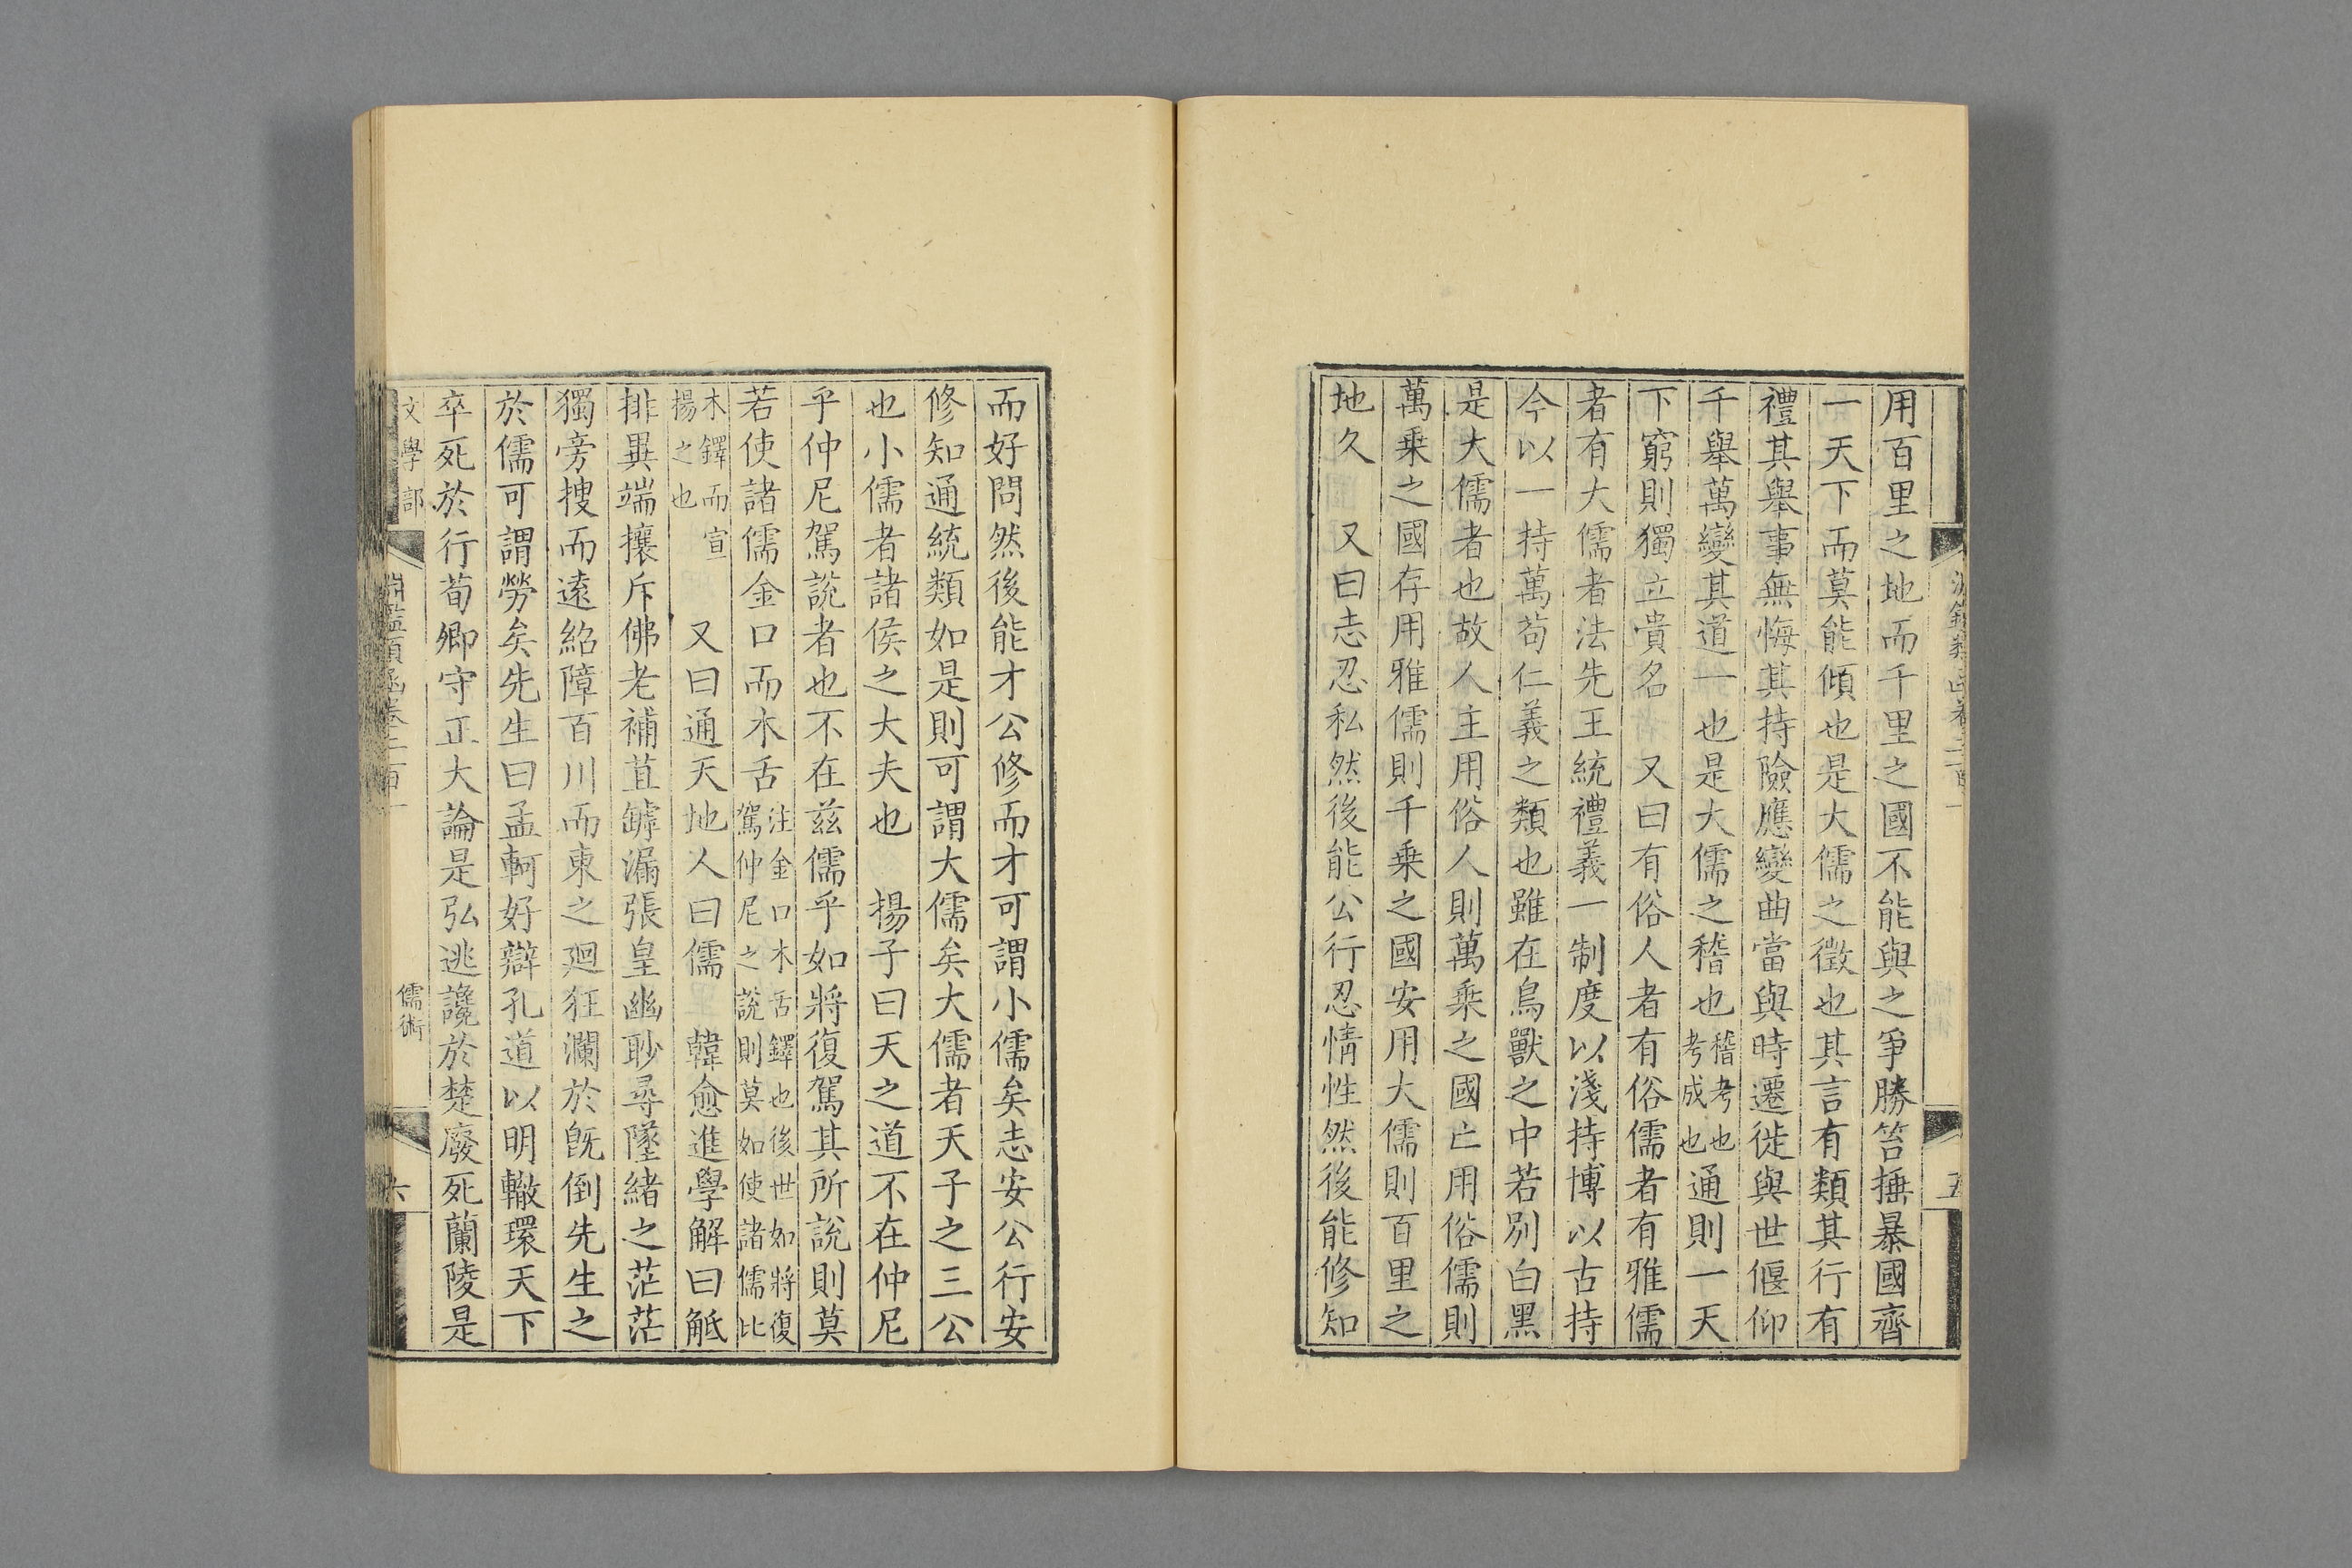 用百里之地而千里之國不能與之爭勝笞捶暴國齊
一天下而莫能傾也是大儒之徵也其言有類其行有
禮其舉事無悔其持險應變曲當與時遷徙與世偃仰
千舉萬變其道一也是大儒之稽也稽考也考成也通則一天
下窮則獨立貴名　又曰有俗人者有俗儒者有雅儒
者有大儒者法先王統禮義一制度以淺持博以古持
今以一持萬苟仁義之類也雖在鳥獸之中若別白黑
是大儒者也故人主用俗人則萬乗之國亡用俗儒則
萬乗之國存用雅儒則千乗之國安用大儒則百里之
地久　又曰志忍私然後能公行忍情性然後能修知
而好問然後能才公修而才可謂小儒矣志安公行安
修知通統類如是則可謂大儒矣大儒者天子之三公
也小儒者諸侯之大夫也　揚子曰天之道不在仲尼
乎仲尼駕説者也不在兹儒乎如將復駕其所說則莫
若使諸儒金口而木舌注金口木舌鐸也後世如將復駕仲尼之說則莫如使諸儒比
木鐸而宣揚之也　又曰通天地人曰儒　韓愈進學解曰觝
排異端攘斥佛老補苴罅漏張皇幽眇尋墜緒之茫茫
獨旁搜而遠紹障百川而東之廻狂瀾於旣倒先生之
於儒可謂勞矣先生曰孟軻好辯孔道以明轍環天下
卒死於行荀卿守正大論是弘逃讒於楚廢死蘭陵是
文學部
淵鑑類函卷二百一
儒術
六